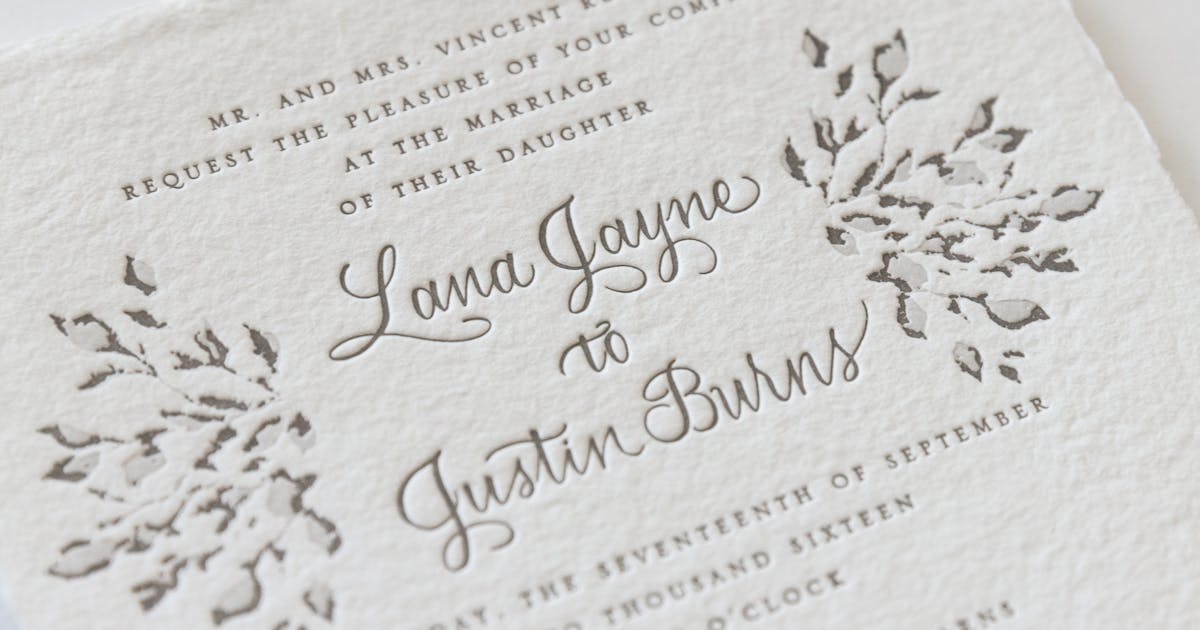 MR. AND MRS. VINCENT
REQUEST THE PLEASURE OF YOUR
AT THE MARRIAGE
OF THEIR DAUGHTER
Lana Jayne
to
Justin Burns
THE SEVENTEENTH OF SEPTEMBER
THOUSAND SIXTEEN
O'CLOCK